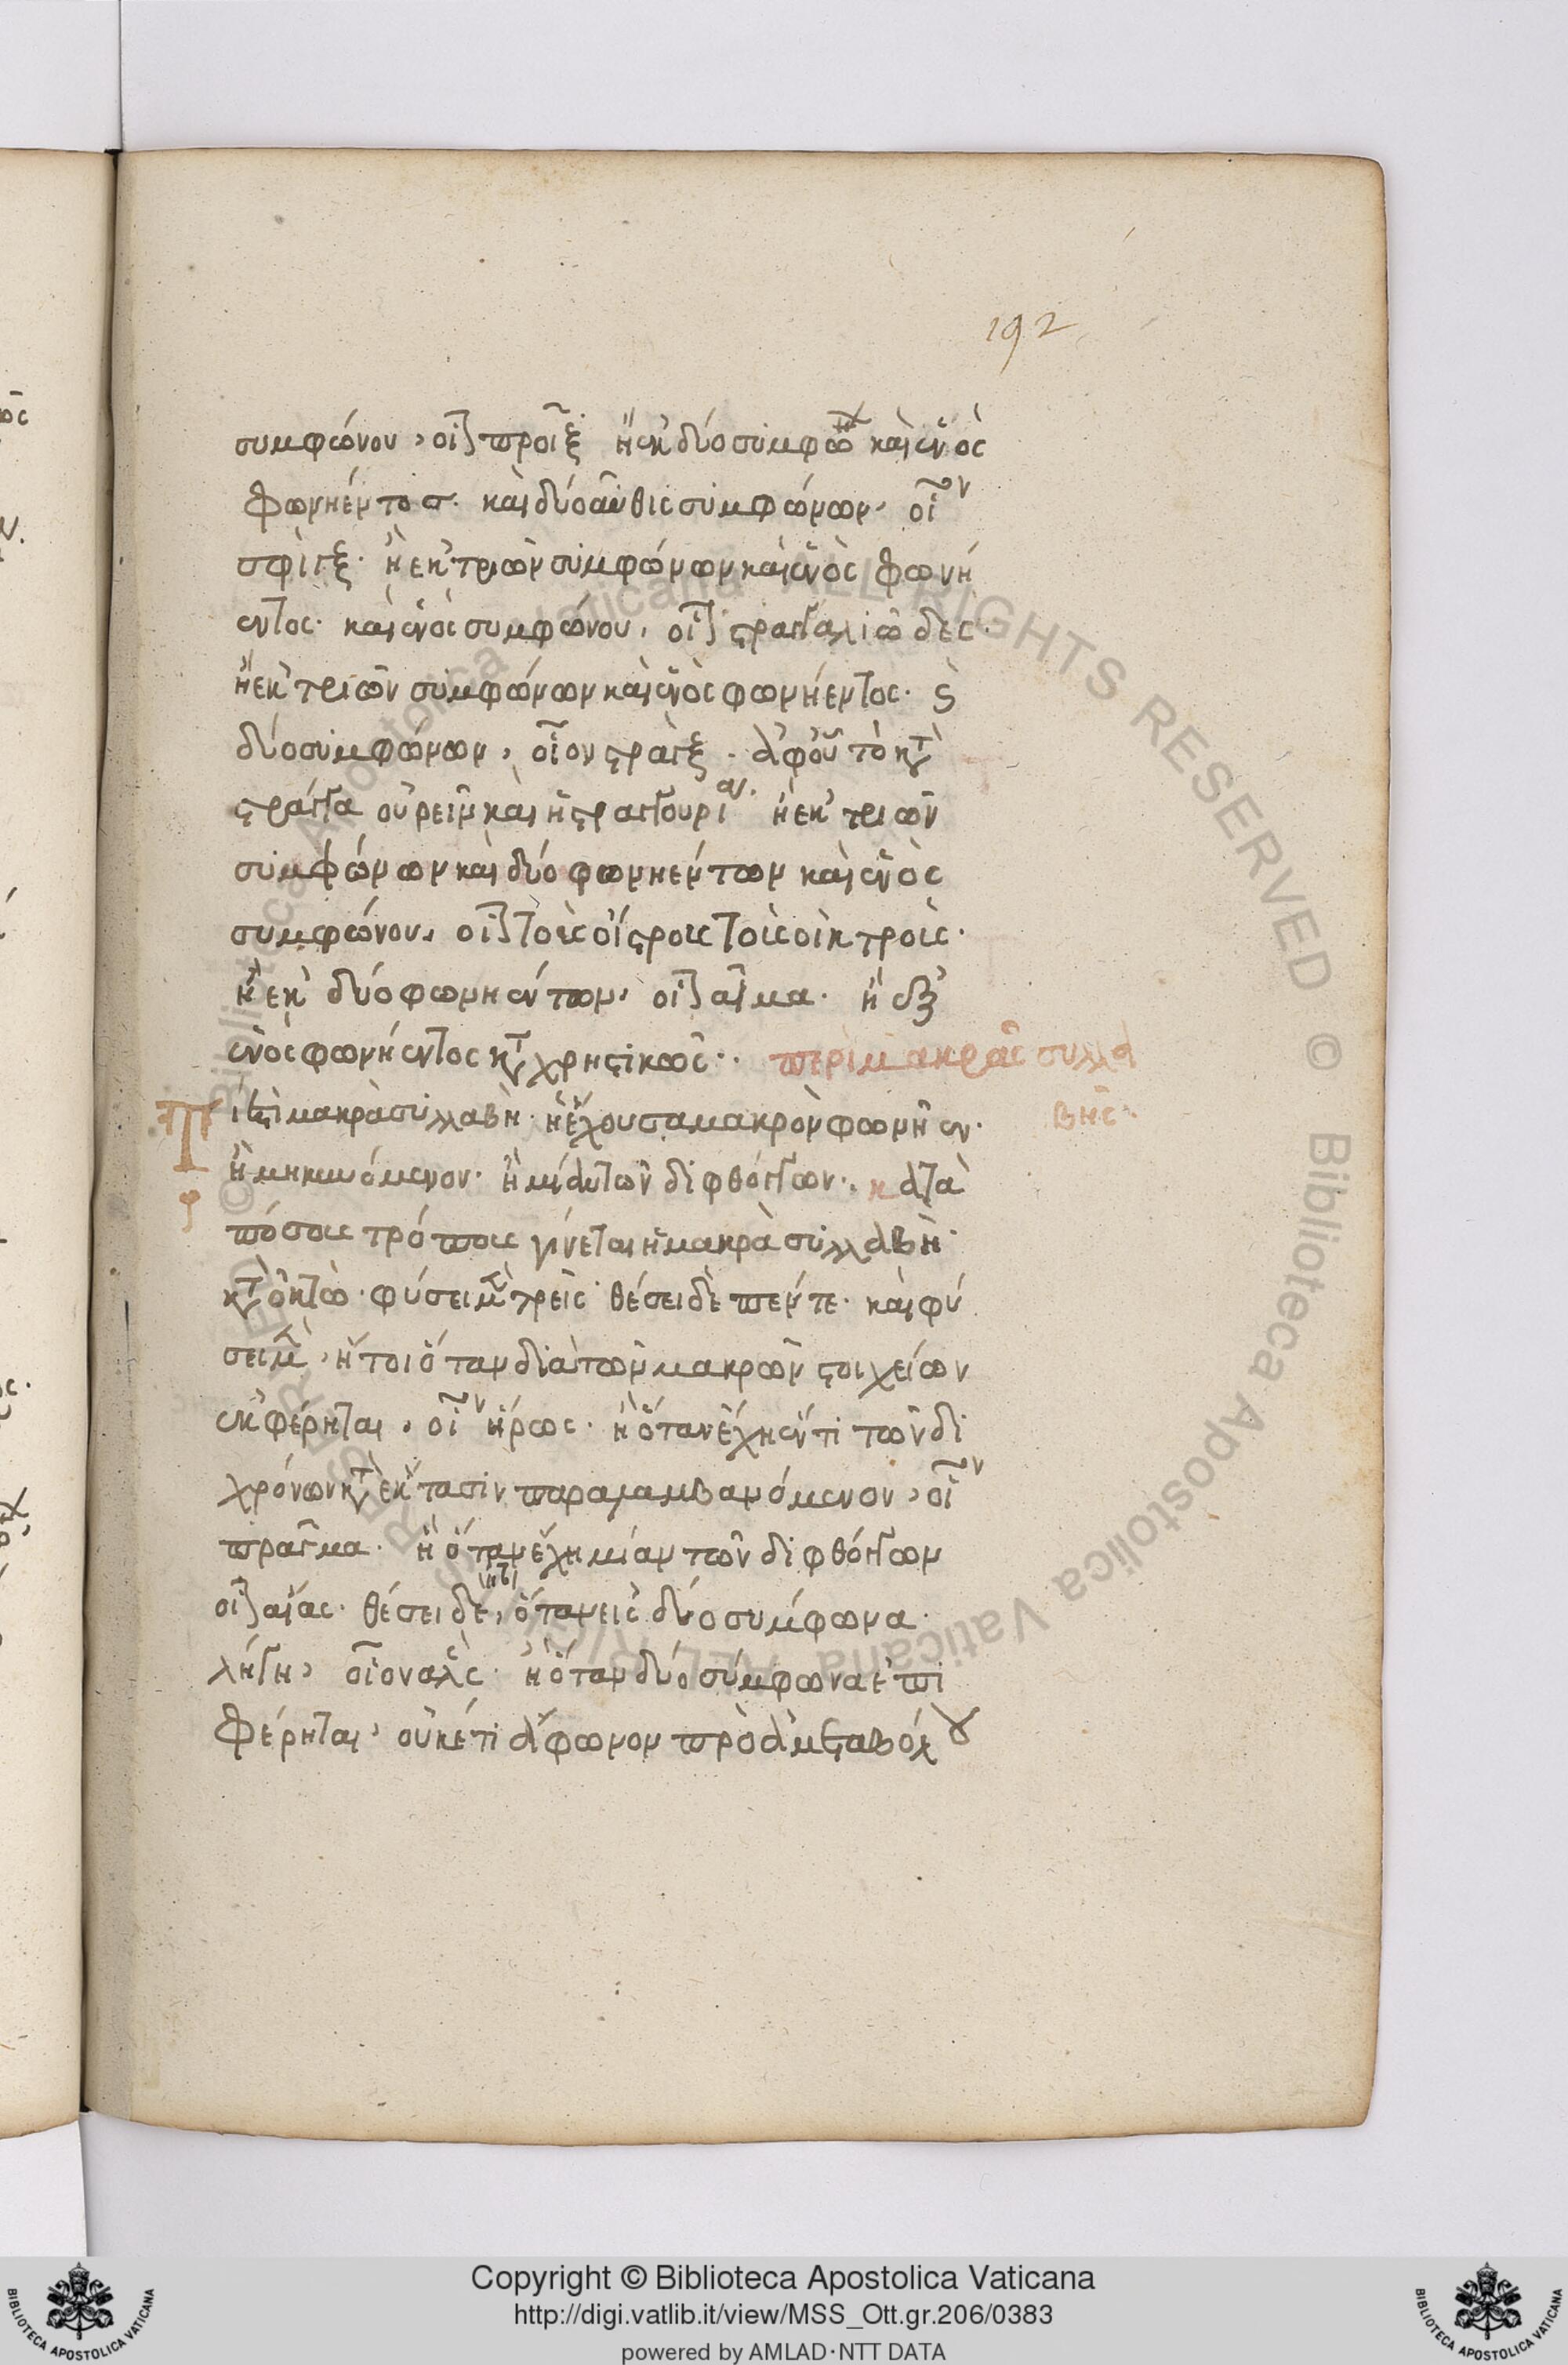 192
συμφώνου, οἷον προῖξ ἢ ἐκ δύο συμφώνων καὶ ἑνὸς
φωνήεντος. καὶ δύο αὖθις συμφώνων, οἷον
σφὶγξ. ἢ ἐκ τριῶν συμφώνων καὶ ἑνὸς φωνή
εντος. καὶ ἑνὸς συμφώνου, οἷον στραγγαλιώδες.
ἢ ἐκ τριῶν συμφώνων καὶ ἑνὸς φωνήεντος. καὶ
δύο συμφώνων, οἷον στρὰγξ. ἀφ' οὗ τὸ κατὰ
στράγγα οὐρεῖν καὶ ἡ στραγγουρία. ἢ ἐκ τριῶν
συμφώνων καὶ δύο φωνηέντων καὶ ἑνὸς
συμφώνου, οἷον τοῖς οἴστροις τοῖς οἰκτροῖς.
ἢ ἐκ δύο φωνηέντων, οἷον αἷμα. ἢ ἐξ
ἑνὸς φωνήεντος καταχρηστικῶς. περὶ μακρᾶς συλλα
βῆς.
Τί ἐστι μακρὰ συλλαβή. ἡ ἔχουσα μακρὸν φωνῆεν.
ἢ μηκυνόμενον. ἢ μίαν τῶν διφθόγγων. κατὰ
πόσους τρόπους γίνεται ἡ μακρὰ συλλαβή.
κατὰ ὀκτώ. φύσει μὲν τρεῖς θέσει δὲ πέντε. καὶ φύ
σει μὲν, ἤτοι ὅταν διὰ τῶν μακρῶν στοιχείων
ἐκφέρηται, οἷον ἥρως. ἢ ὅταν ἔχῃ ἕν τι τῶν δι
χρόνων κατ' ἔκτασιν παραλαμβανόμενον, οἷον
πρᾶγμα. ἢ ὅταν ἔχῃ μίαν τῶν διφθόγγων
οἷον αἴας. θέσει δὲ, ἤτοι ὅταν εἰς δύο σύμφωνα
λήγῃ, οἷον ἁλς. ἢ ὅταν δύο σύμφωνα ἐπι
φέρηται, οὐκέτι ἄφωνον πρὸ ἀμεταβόλου
Copyright © Biblioteca Apostolica Vaticana
http://digi.vatlib.it/view/MSS_Ott.gr.206/0383
powered by AMLAD·NTT DATA
BIBLIOTECA APOSTOLICA VATICANA
BIBLIOTECA APOSTOLICA VATICANA
© Biblioteca Apostolica Vaticana ALL RIGHTS RESERVED © Biblioteca Apostolica Vaticana ALL RIGHTS RESERVED